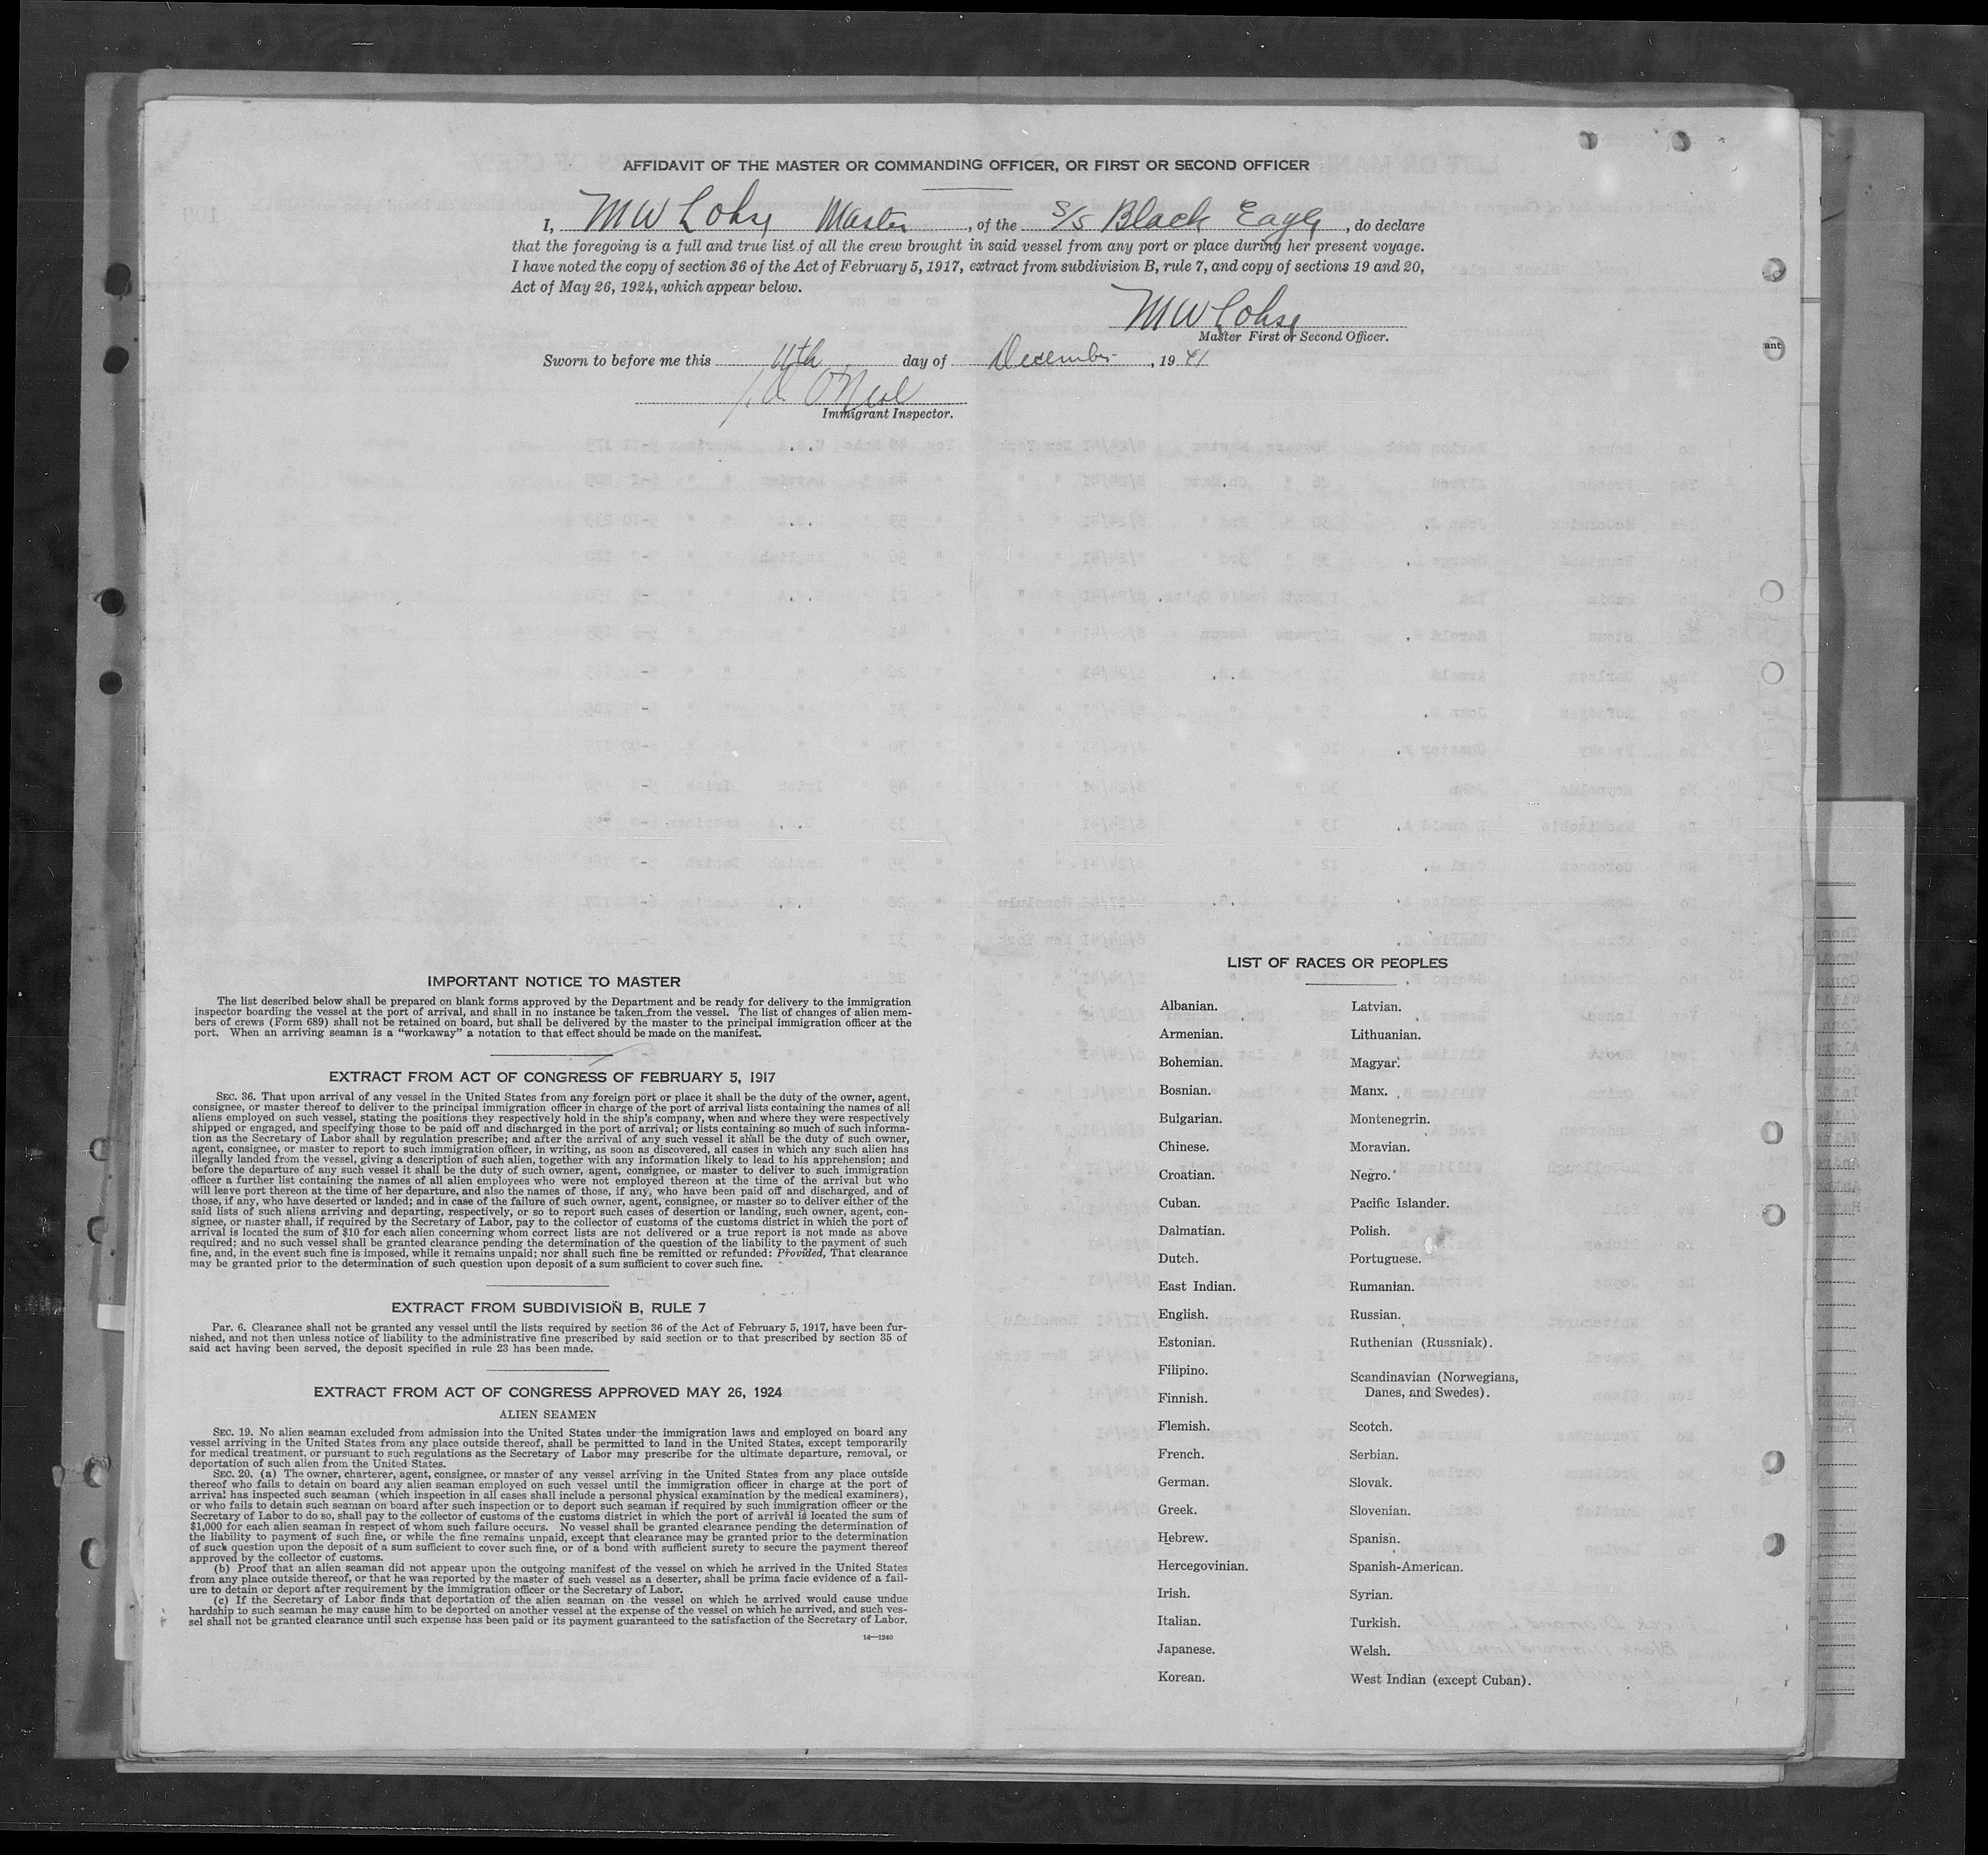 AFFIDAVIT OF THE MASTER OR COMMANDING OFFICER, OR FIRST OR SECOND OFFICER
I, MW Lohse Master, of the S/S Black Eagle, do declare
that the foregoing is a full and true list of all the crew brought in said vessel from any port or place during her present voyage.
I have noted the copy of section 36 of the Act of February 5, 1917, extract from subdivision B, rule 7, and copy of sections 19 and 20,
Act of May 26, 1924, which appear below.
MW Lohse
Master First or Second Officer.
Sworn to before me this 11th day of December, 1941
O'Neal
Immigrant Inspector.
IMPORTANT NOTICE TO MASTER
The list described below shall be prepared on blank forms approved by the Department and be ready for delivery to the immigration
inspector boarding the vessel at the port of arrival, and shall in no instance be taken from the vessel. The list of changes of alien mem-
bers of crews (Form 689) shall not be retained on board, but shall be delivered by the master to the principal immigration officer at the
port. When an arriving seaman is a "workaway" a notation to that effect should be made on the manifest.
EXTRACT FROM ACT OF CONGRESS OF FEBRUARY 5, 1917
SEC. 36. That upon arrival of any vessel in the United States from any foreign port or place it shall be the duty of the owner, agent,
consignee, or master thereof to deliver to the principal immigration officer in charge of the port of arrival lists containing the names of all
aliens employed on such vessel, stating the positions they respectively hold in the ship's company, when and where they were respectively
shipped or engaged, and specifying those to be paid off and discharged in the port of arrival; or lists containing so much of such informa-
tion as the Secretary of Labor shall by regulation prescribe; and after the arrival of any such vessel it shall be the duty of such owner,
agent, consignee, or master to report to such immigration officer, in writing, as soon as discovered, all cases in which any such alien has
illegally landed from the vessel, giving a description of such alien, together with any information likely to lead to his apprehension; and
before the departure of any such vessel it shall be the duty of such owner, agent, consignee, or master to deliver to such immigration
officer a further list containing the names of all alien employees who were not employed thereon at the time of the arrival but who
will leave port thereon at the time of her departure, and also the names of those, if any, who have been paid off and discharged, and of
those, if any, who have deserted or landed; and in case of the failure of such owner, agent, consignee, or master so to deliver either of the
said lists of such aliens arriving and departing, respectively, or so to report such cases of desertion or landing, such owner, agent, con-
signee, or master shall, if required by the Secretary of Labor, pay to the collector of customs of the customs district in which the port of
arrival is located the sum of $10 for each alien concerning whom correct lists are not delivered or a true report is not made as above
required; and no such vessel shall be granted clearance pending the determination of the question of the liability to the payment of such
fine, and, in the event such fine is imposed, while it remains unpaid; nor shall such fine be remitted or refunded: Provided, That clearance
may be granted prior to the determination of such question upon deposit of a sum sufficient to cover such fine.
EXTRACT FROM SUBDIVISION B, RULE 7
Par. 6. Clearance shall not be granted any vessel until the lists required by section 36 of the Act of February 5, 1917, have been fur-
nished, and not then unless notice of liability to the administrative fine prescribed by said section or to that prescribed by section 35 of
said act having been served, the deposit specified in rule 23 has been made.
EXTRACT FROM ACT OF CONGRESS APPROVED MAY 26, 1924
ALIEN SEAMEN
SEC. 19. No alien seaman excluded from admission into the United States under the immigration laws and employed on board any
vessel arriving in the United States from any place outside thereof, shall be permitted to land in the United States, except temporarily
for medical treatment, or pursuant to such regulations as the Secretary of Labor may prescribe for the ultimate departure, removal, or
deportation of such alien from the United States.
SEC. 20. (a) The owner, charterer, agent, consignee, or master of any vessel arriving in the United States from any place outside
thereof who fails to detain on board any alien seaman employed on such vessel until the immigration officer in charge at the port of
arrival has inspected such seaman (which inspection in all cases shall include a personal physical examination by the medical examiners),
or who fails to detain such seaman on board after such inspection or to deport such seaman if required by such immigration officer or the
Secretary of Labor to do so, shall pay to the collector of customs of the customs district in which the port of arrival is located the sum of
$1,000 for each alien seaman in respect of whom such failure occurs. No vessel shall be granted clearance pending the determination of
the liability to payment of such fine, or while the fine remains unpaid, except that clearance may be granted prior to the determination
of such question upon the deposit of a sum sufficient to cover such fine, or of a bond with sufficient surety to secure the payment thereof
approved by the collector of customs.
(b) Proof that an alien seaman did not appear upon the outgoing manifest of the vessel on which he arrived in the United States
from any place outside thereof, or that he was reported by the master of such vessel as a deserter, shall be prima facie evidence of a fail-
ure to detain or deport after requirement by the immigration officer or the Secretary of Labor.
(c) If the Secretary of Labor finds that deportation of the alien seaman on the vessel on which he arrived would cause undue
hardship to such seaman he may cause him to be deported on another vessel at the expense of the vessel on which he arrived, and such ves-
sel shall not be granted clearance until such expense has been paid or its payment guaranteed to the satisfaction of the Secretary of Labor.
14—1240
LIST OF RACES OR PEOPLES
Albanian.
Armenian.
Bohemian.
Bosnian.
Bulgarian.
Chinese.
Croatian.
Cuban.
Dalmatian.
Dutch.
East Indian.
English.
Estonian.
Filipino.
Finnish.
Flemish.
French.
German.
Greek.
Hebrew.
Hercegovinian.
Irish.
Italian.
Japanese.
Korean.
Latvian.
Lithuanian.
Magyar.
Manx.
Montenegrin.
Moravian.
Negro.
Pacific Islander.
Polish.
Portuguese.
Rumanian.
Russian.
Ruthenian (Russniak).
Scandinavian (Norwegians,
Danes, and Swedes).
Scotch.
Serbian.
Slovak.
Slovenian.
Spanish.
Spanish-American.
Syrian.
Turkish.
Welsh.
West Indian (except Cuban).